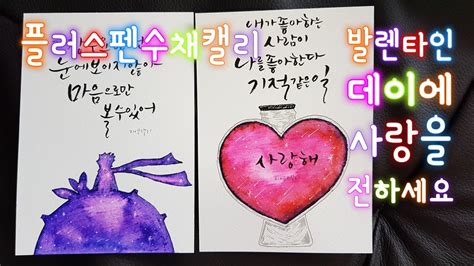 플러스펜수채캘리
눈에보이지않아
마음으로만
볼수있어
내가좋아하는
사람이
나를좋아한다
기적같은일
사랑해
발렌타인
데이에
사랑을
전하세요